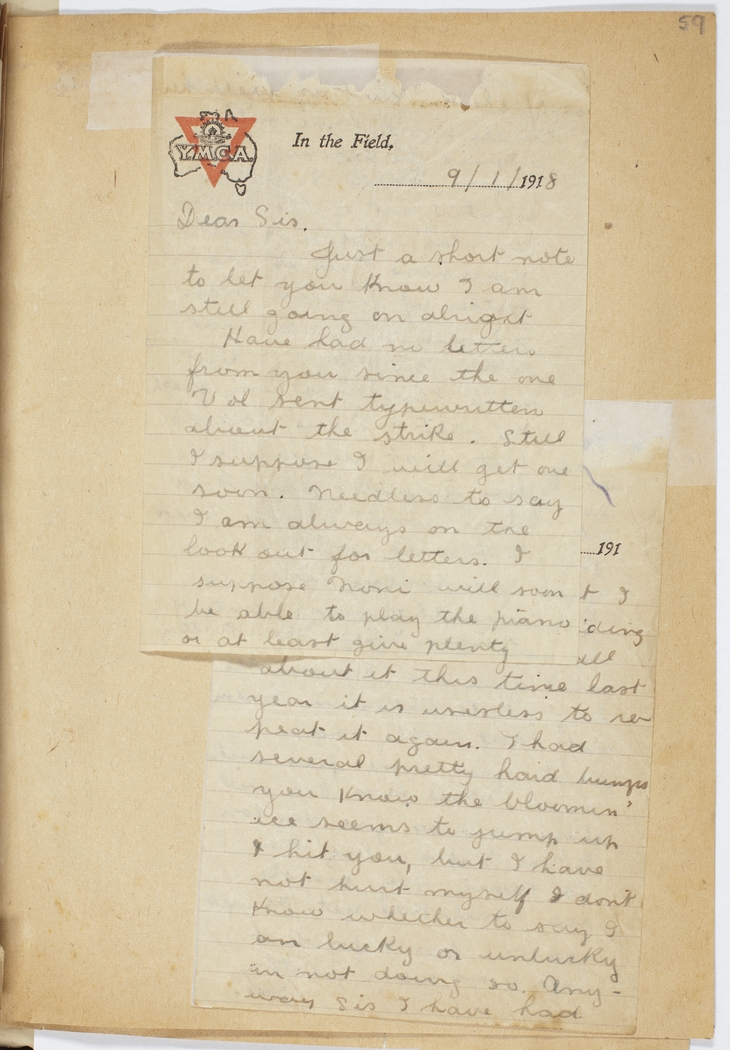 59
YMCA
In the Field,
9/1/1918
Dear Sis.
Just a short note
to let you know I am
still going on alright
Have had no letters
from you since the one
Vol sent typewritten
about the strike. Still
I suppose I will get one
soon. Needless to say
I am always on the
look out for letters. I
suppose Noni will soon
be able to play the piano
or at least give plenty
191
t I
iding
ell
about it this time last
year it is useless to re-
peat it again. I had
several pretty hard bumps
you know the bloomin'
ice seems to jump up
& hit you, but I have
not hurt myself & don't
know whether to say I
am lucky or unlucky
in not doing so. Any-
way Sis I have had